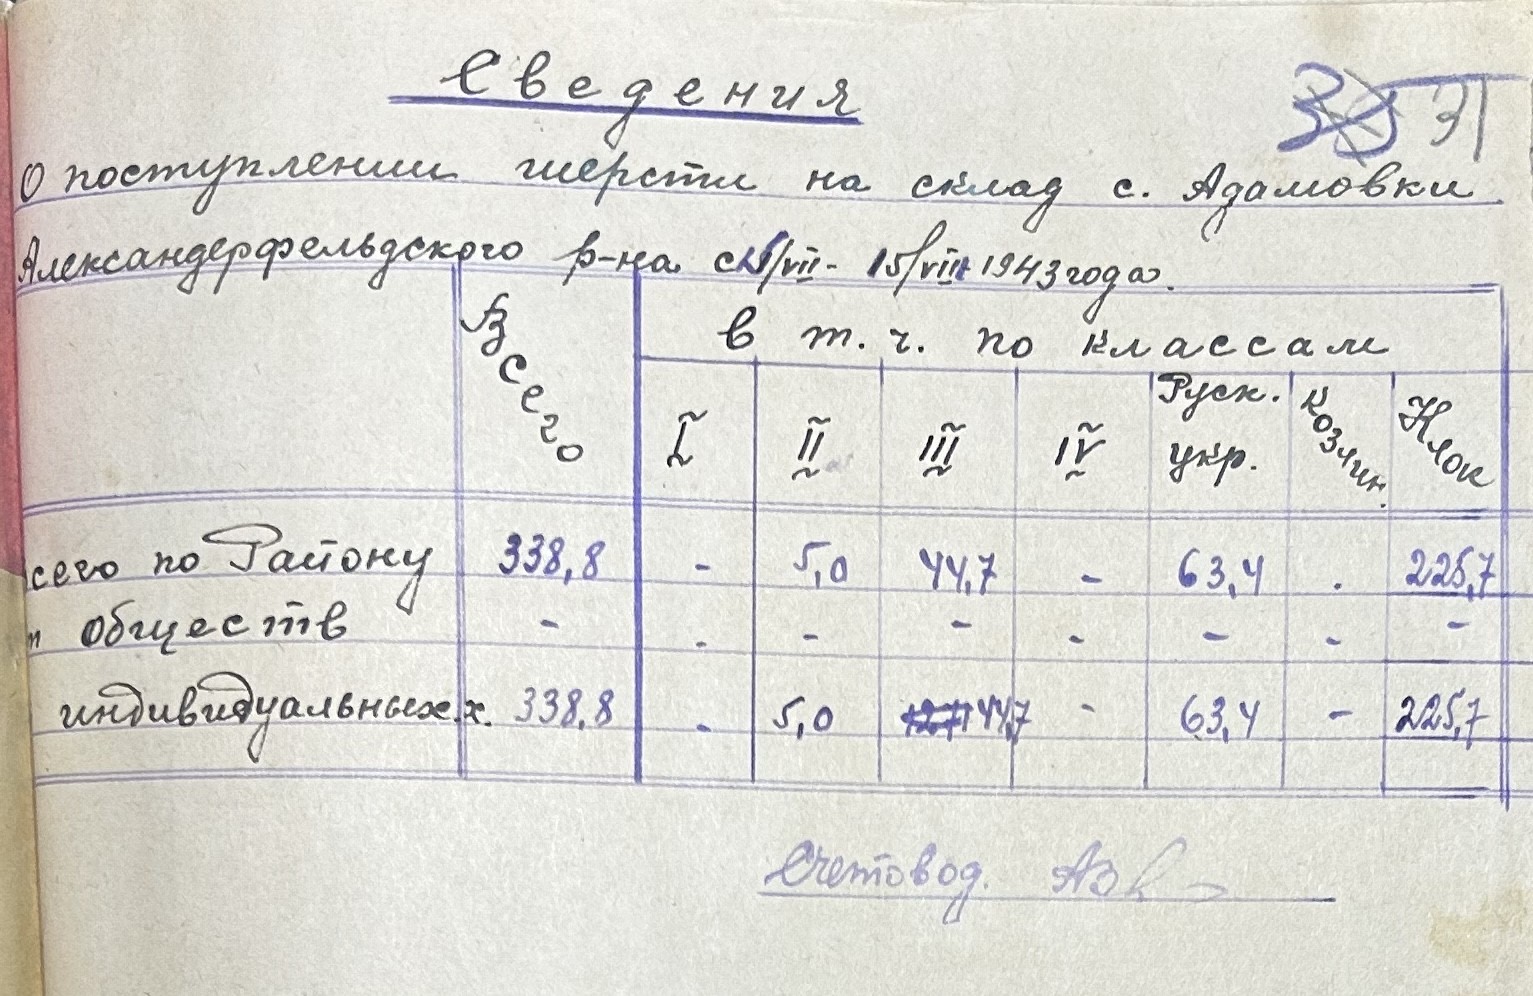 Сведения
31
О поступлении шерсти на склад с. Адамовки
Александерфельдского р-на с 15/VII - 15/VIII 1943 года.
Всего
в т. ч. по классам
I II III IV Руск. укр. Козлин. Клок
сего по Району 338,8 - 5,0 44,7 - 63,4 . 225,7
обществ - - - - - - - -
индивидуальных х. 338,8 - 5,0 44,7 - 63,4 - 225,7
Счетовод.